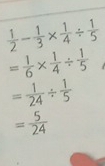 1/2 - 1/3 × 1/4 ÷ 1/5
= 1/6 × 1/4 ÷ 1/5
= 1/24 ÷ 1/5
= 5/24